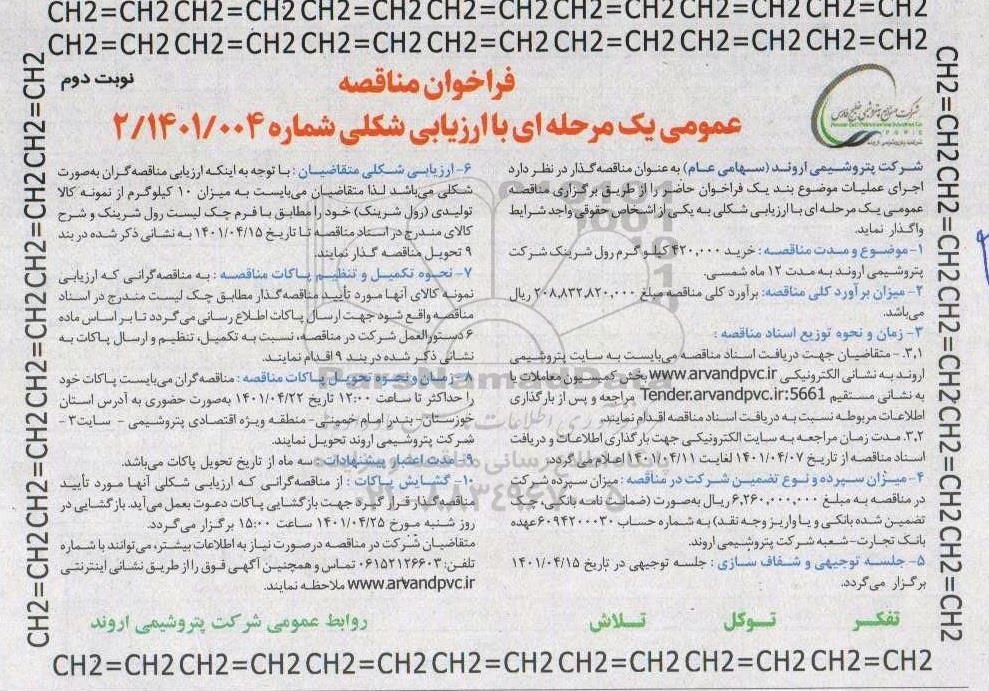 CH2=CH2 CH2=CH2 CH2=CH2 CH2=CH2 CH2=CH2 CH2=CH2 CH2=CH2
CH2=CH2 CH2=CH2 CH2=CH2 CH2=CH2 CH2=CH2 CH2=CH2 CH2=CH2
نوبت دوم
فراخوان مناقصه
عمومی یک مرحله ای با ارزیابی شکلی شماره ۲/۱۴۰۱/۰۰۴
شرکت صنایع پتروشیمی خلیج فارس
شرکت پتروشیمی اروند (سهامی عام) به عنوان مناقصه گذار در نظر دارد
اجرای عملیات موضوع بند یک فراخوان حاضر را از طریق برگزاری مناقصه
عمومی یک مرحله ای با ارزیابی شکلی به یکی از اشخاص حقوقی واجد شرایط
واگذار نماید.
۱- موضوع و مدت مناقصه: خرید ۴۲۰,۰۰۰ کیلو گرم رول شرینک شرکت
پتروشیمی اروند به مدت ۱۲ ماه شمسی.
۲- میزان برآورد کلی مناقصه: برآورد کلی مناقصه مبلغ ۲۰۸,۸۳۲,۸۲۰,۰۰۰ ریال
می‌باشد.
۳- زمان و نحوه توزیع اسناد مناقصه :
۳.۱. - متقاضیان جهت دریافت اسناد مناقصه می‌بایست به سایت پتروشیمی
اروند به نشانی الکترونیکی www.arvandpvc.ir بخش کمیسیون معاملات یا
به نشانی مستقیم Tender.arvandpvc.ir:5661 مراجعه و پس از بارگذاری
اطلاعات مربوطه نسبت به دریافت اسناد مناقصه اقدام نمایند.
۳.۲. مدت زمان مراجعه به سایت الکترونیکی جهت بارگذاری اطلاعات و دریافت
اسناد مناقصه از تاریخ ۱۴۰۱/۰۴/۰۷ لغایت ۱۴۰۱/۰۴/۱۱ اعلام می گردد.
۴- میزان سپرده و نوع تضمین شرکت در مناقصه: میزان سپرده شرکت
در مناقصه به مبلغ ۶,۲۶۰,۰۰۰,۰۰۰ ریال به‌صورت (ضمانت نامه بانکی، چک
تضمین شده بانکی و یا واریز وجه نقد) به شماره حساب ۶۰۹۴۲۰۰۰۳۰ عهده
بانک تجارت- شعبه شرکت پتروشیمی اروند.
۵- جلسه توجیهی و شفاف سازی : جلسه توجیهی در تاریخ ۱۴۰۱/۰۴/۱۵
برگزار می‌گردد.
۶- ارزیابی شکلی متقاضیان : با توجه به اینکه ارزیابی مناقصه گران به‌صورت
شکلی می‌باشد لذا متقاضیان می‌بایست به میزان ۱۰ کیلوگرم از نمونه کالا
تولیدی (رول شرینک) خود را مطابق با فرم چک لیست رول شرینک و شرح
کالای مندرج در اسناد مناقصه تا تاریخ ۱۴۰۱/۰۴/۱۵ به نشانی ذکر شده در بند
۹ تحویل مناقصه گذار نمایند.
۷- نحوه تکمیل و تنظیم پاکات مناقصه : به مناقصه گرانی که ارزیابی
نمونه کالای آنها مورد تأیید مناقصه گذار مطابق چک لیست مندرج در اسناد
مناقصه واقع شود جهت ارسال پاکات اطلاع رسانی می گردد تا بر اساس ماده
۶ دستورالعمل شرکت در مناقصه، نسبت به تکمیل، تنظیم و ارسال پاکات به
نشانی ذکر شده در بند ۹ اقدام نمایند.
۸- زمان و نحوه تحویل پاکات مناقصه : مناقصه گران می‌بایست پاکات خود
را حداکثر تا ساعت ۱۲:۰۰ تاریخ ۱۴۰۱/۰۴/۲۲ به‌صورت حضوری به آدرس استان
خوزستان- بندر امام خمینی- منطقه ویژه اقتصادی پتروشیمی - سایت۳ -
شرکت پتروشیمی اروند تحویل نمایند.
۹- مدت اعتبار پیشنهادات : سه ماه از تاریخ تحویل پاکات می‌باشد.
۱۰- گشایش پاکات : از مناقصه گرانی که ارزیابی شکلی آنها مورد تأیید
مناقصه گذار قرار گیرد جهت بازگشایی پاکات دعوت بعمل می‌آید. بازگشایی در
روز شنبه مورخ ۱۴۰۱/۰۴/۲۵ ساعت ۱۵:۰۰ برگزار می‌گردد.
متقاضیان شرکت در مناقصه در صورت نیاز به اطلاعات بیشتر، می‌توانند با شماره
تلفن: ۰۶۱۵۲۱۲۶۶۰۳ تماس و همچنین آگهی فوق را از طریق نشانی اینترنتی
www.arvandpvc.ir ملاحظه نمایند.
تفکر توکل تلاش
روابط عمومی شرکت پتروشیمی اروند
CH2=CH2 CH2=CH2 CH2=CH2 CH2=CH2 CH2=CH2 CH2=CH2 CH2=CH2
CH2=CH2 CH2=CH2 CH2=CH2 CH2=CH2 CH2=CH2
CH2=CH2 CH2=CH2 CH2=CH2 CH2=CH2 CH2=CH2
ParsNamadData